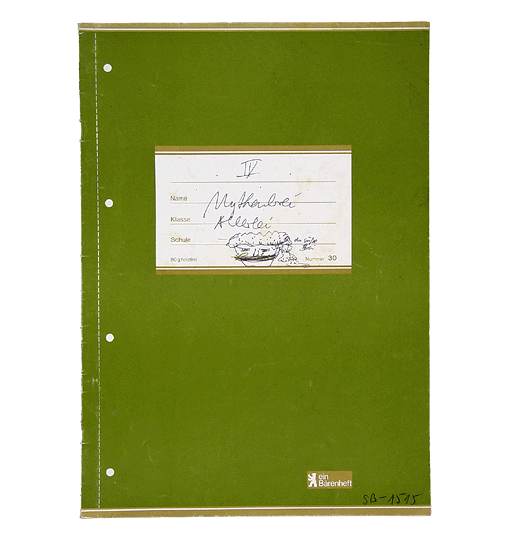 IV
Name Mythenbrei
Klasse Allerlei
Schule
80 g holzfrei
Nummer 30
ein
Bärenheft
SB-1515